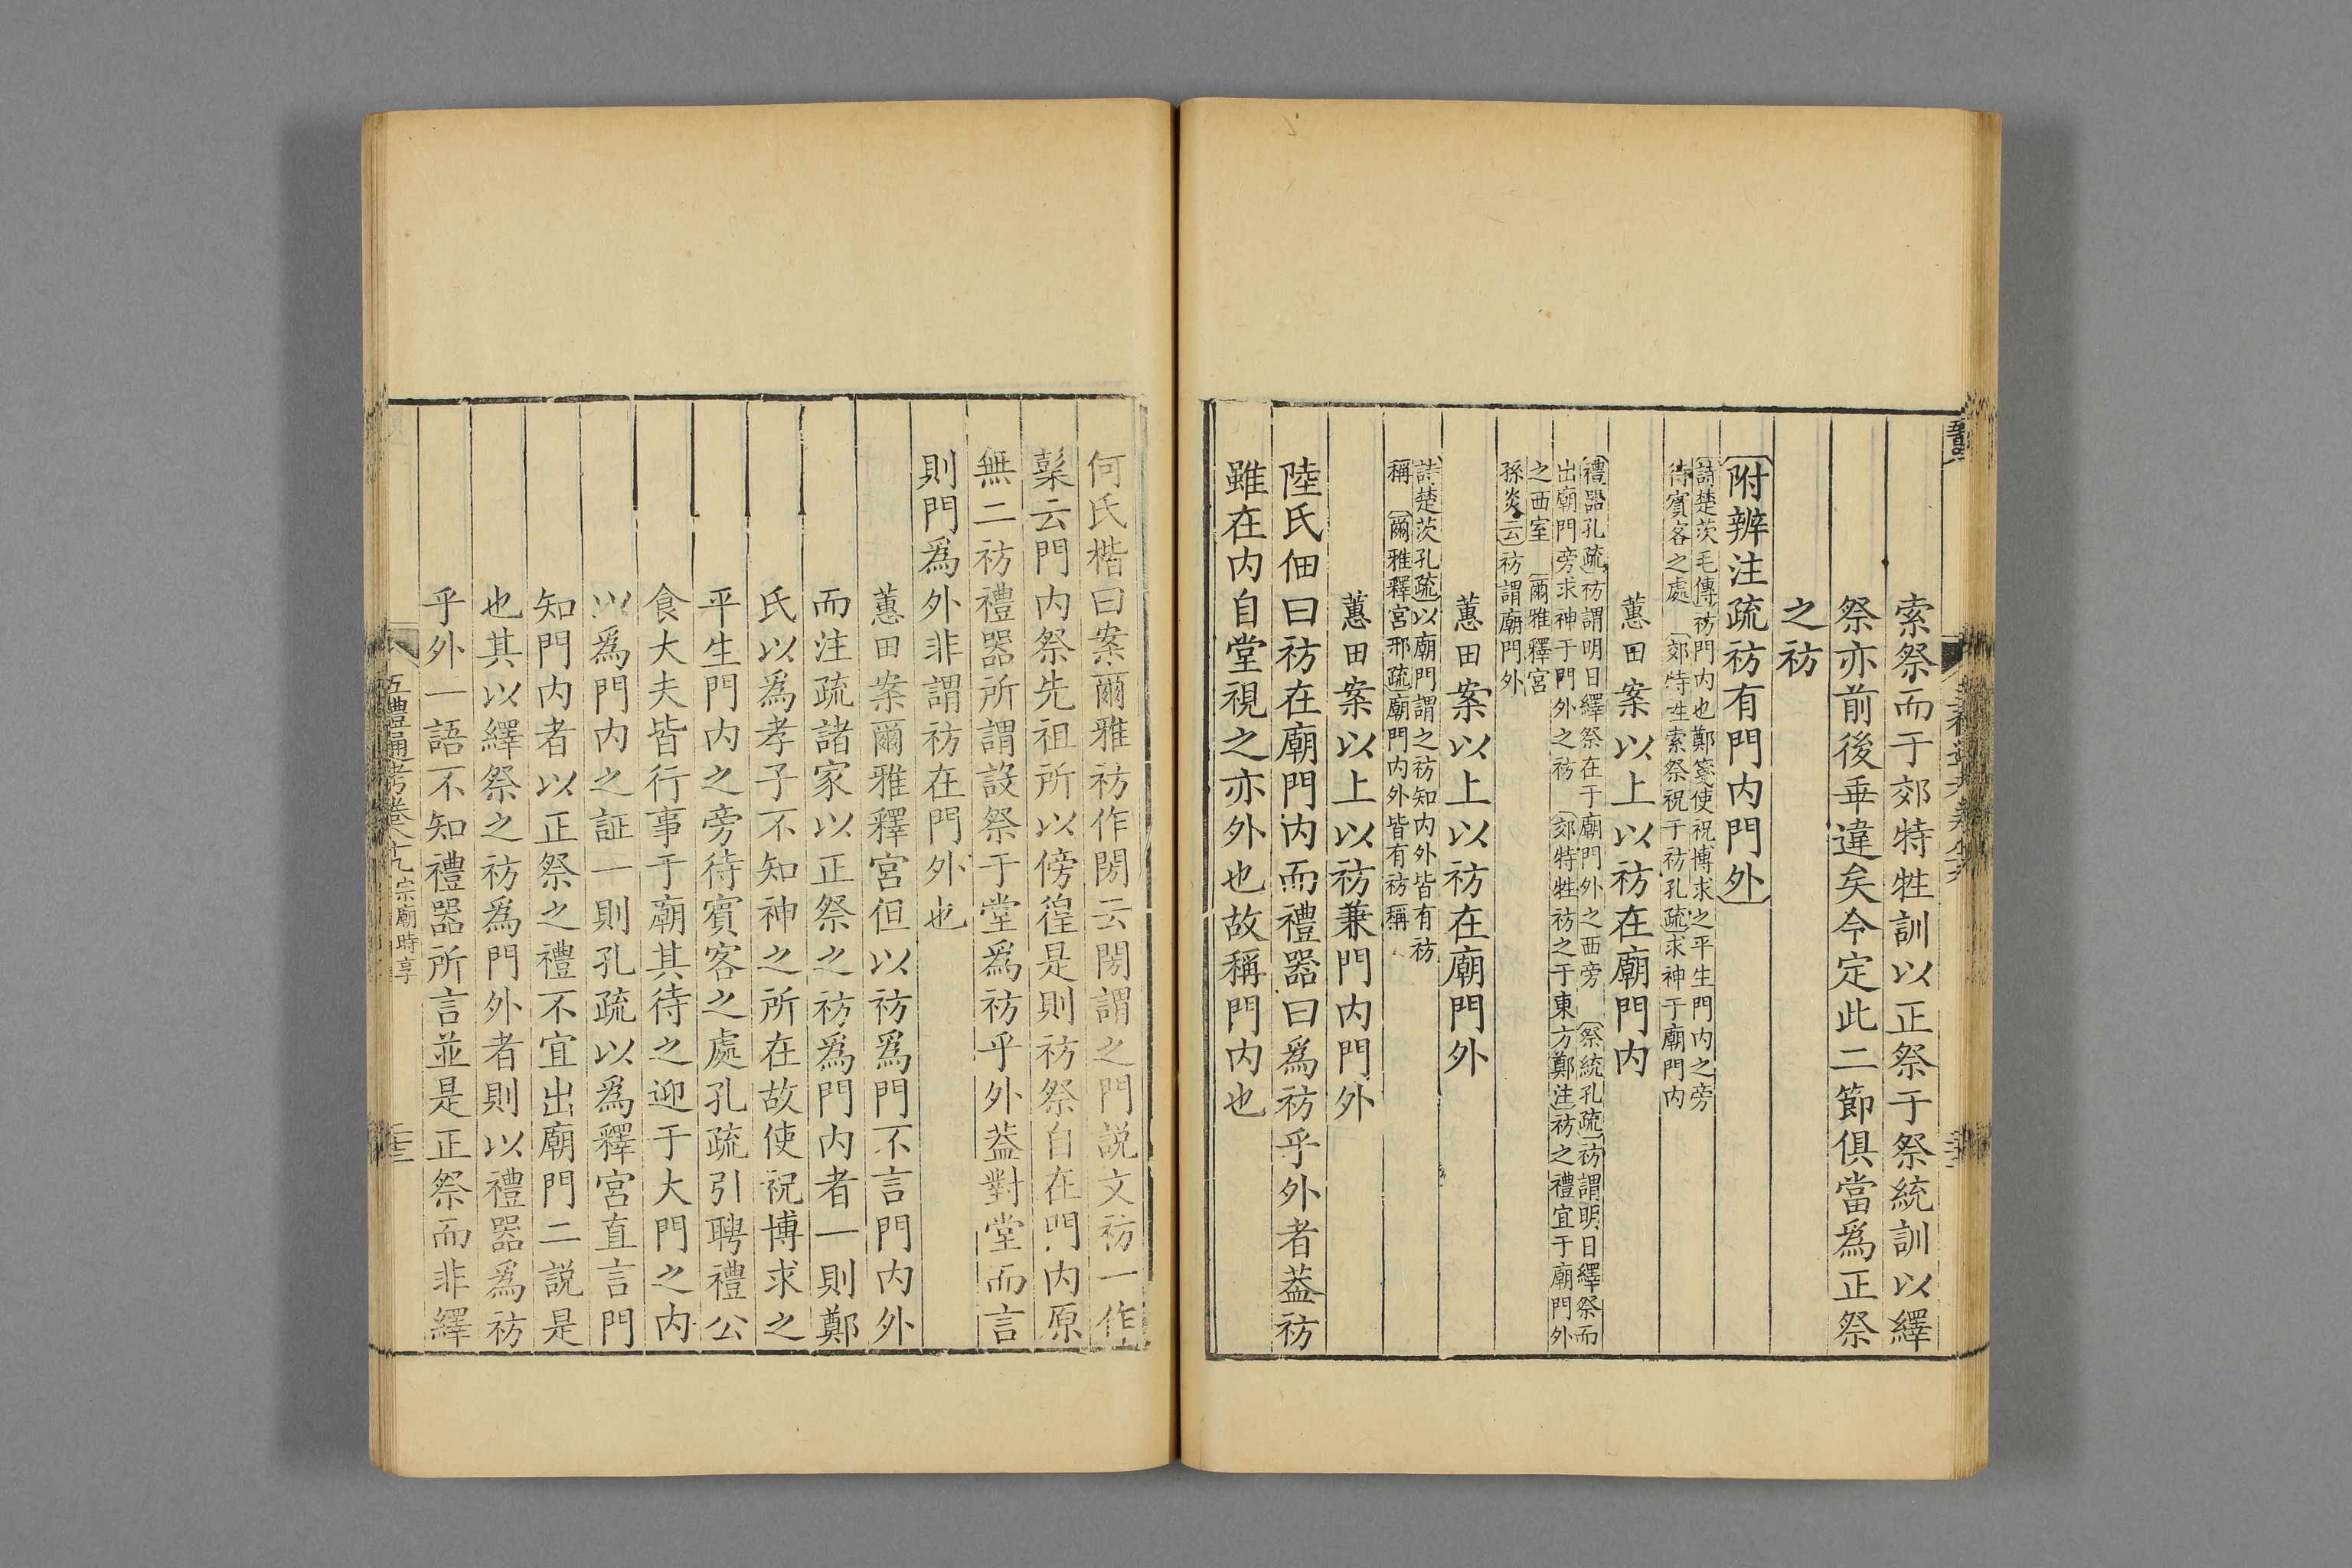 索祭而于郊特牲訓以正祭于祭統訓以繹
祭亦前後乖違矣今定此二節俱當爲正祭
之祊
附辨注疏祊有門内門外
詩楚茨毛傳祊門内也鄭箋使祝博求之平生門内之旁
待賓客之處 郊特牲索祭祝于祊孔疏求神于廟門内
蕙田案以上以祊在廟門内
禮器孔疏祊謂明日繹祭在于廟門外之西旁 祭統孔疏祊謂明日繹祭而
出廟門旁求神于門外之祊 郊特牲祊之于東方鄭注祊之禮宜于廟門外
之西室 爾雅釋宮
孫炎云祊謂廟門外
蕙田案以上以祊在廟門外
詩楚茨孔疏以廟門謂之祊知内外皆有祊
稱 爾雅釋宮邢疏廟門内外皆有祊稱
蕙田案以上以祊兼門内門外
陸氏佃曰祊在廟門内而禮器曰爲祊乎外者蓋祊
雖在内自堂視之亦外也故稱門内也
何氏楷曰案爾雅祊作閍云閍謂之門説文祊一作
𥛱云門内祭先祖所以傍徨是則祊祭自在門内原
無二祊禮器所謂設祭于堂爲祊乎外蓋對堂而言
則門爲外非謂祊在門外也
蕙田案爾雅釋宮但以祊爲門不言門内外
而注疏諸家以正祭之祊爲門内者一則鄭
氏以爲孝子不知神之所在故使祝博求之
平生門内之旁待賓客之處孔疏引聘禮公
食大夫皆行事于廟其待之迎于大門之内
以爲門内之証一則孔疏以爲釋宮直言門
知門内者以正祭之禮不宜出廟門二説是
也其以繹祭之祊爲門外者則以禮器爲祊
乎外一語不知禮器所言並是正祭而非繹
五禮通考卷八十九宗廟時享